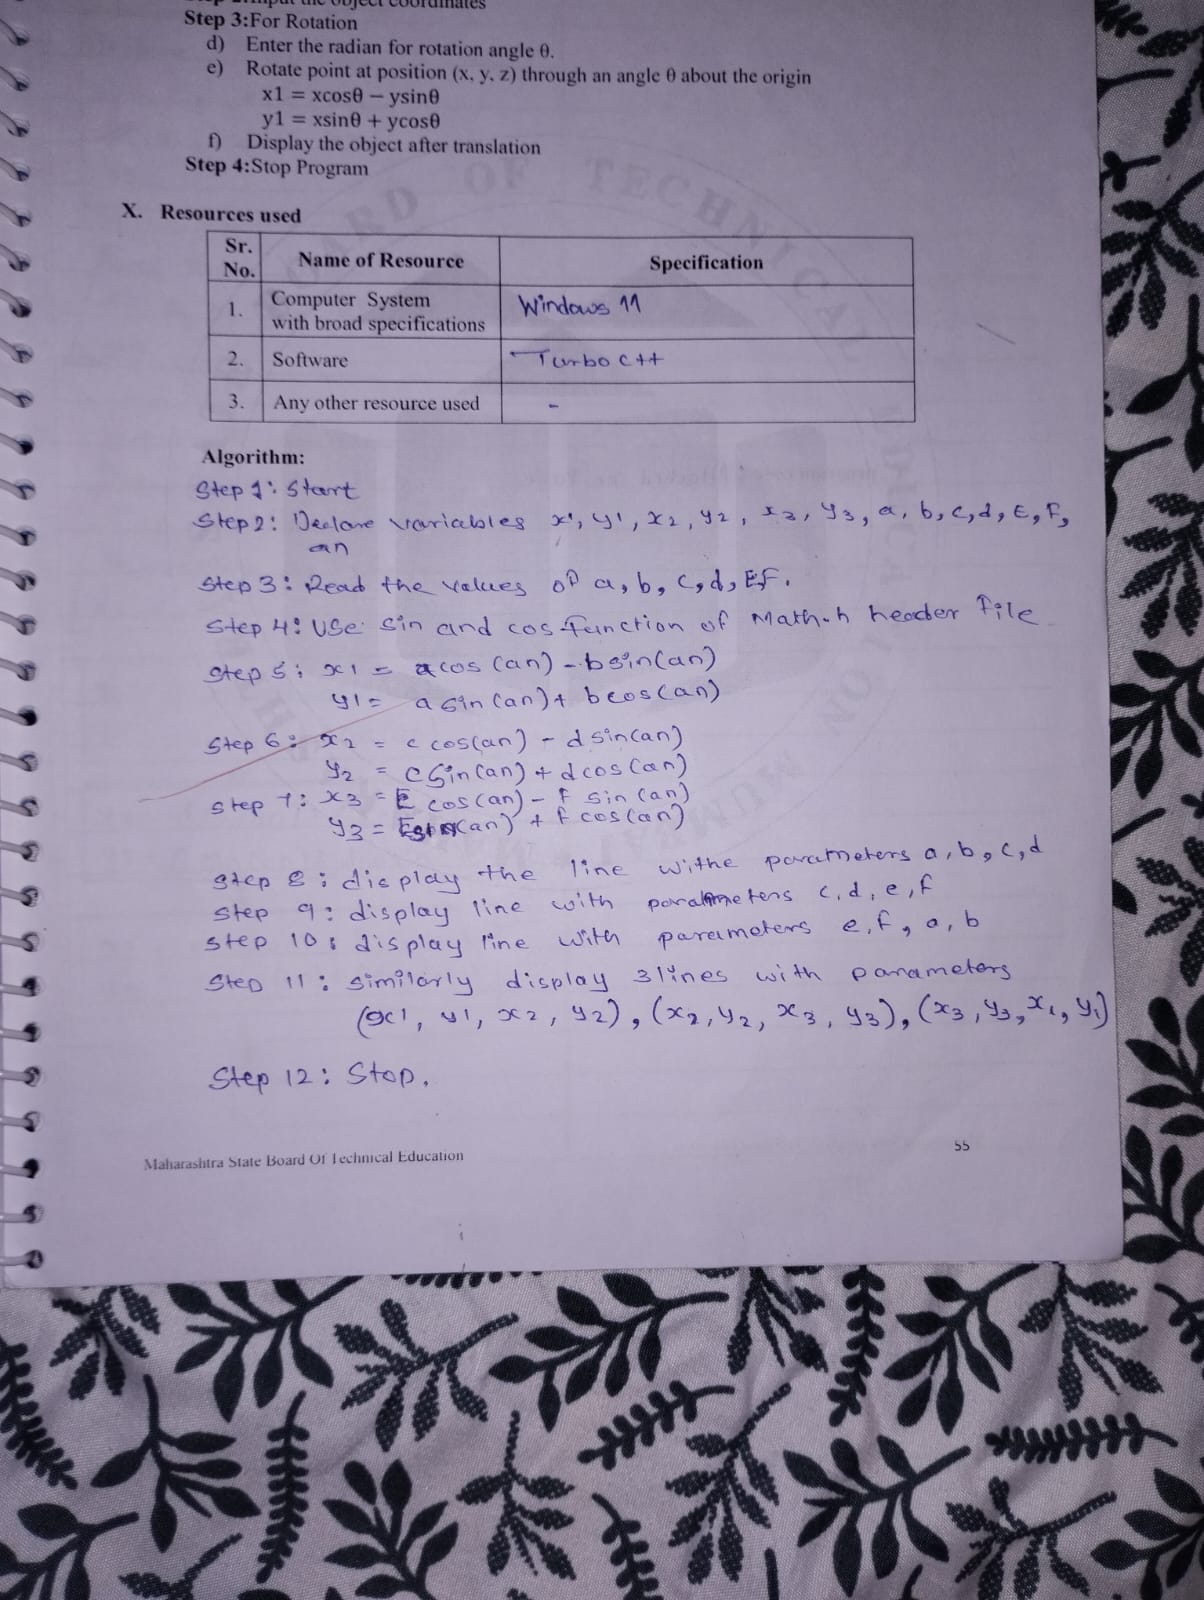 Step 2:Input the object coordinates
Step 3:For Rotation
d) Enter the radian for rotation angle θ.
e) Rotate point at position (x, y, z) through an angle θ about the origin
x1 = xcosθ – ysinθ
y1 = xsinθ + ycosθ
f) Display the object after translation
Step 4:Stop Program
X. Resources used
Sr. No. Name of Resource Specification
1. Computer System with broad specifications Windows 11
2. Software Turbo C++
3. Any other resource used -
Algorithm:
Step 1: Start
Step 2: Declare variables x1, y1, x2, y2, x3, y3, a, b, c, d, E, F,
an
Step 3: Read the values of a, b, c, d, E, F.
Step 4: Use sin and cos function of Math.h header file
Step 5: x1 = a cos (an) - b sin(an)
y1 = a sin (an) + b cos (an)
Step 6: x2 = c cos(an) - d sin(an)
y2 = c sin (an) + d cos (an)
Step 7: x3 = E cos (an) - f sin (an)
y3 = E sin (an) + f cos (an)
Step 8: display the line withe parameters a, b, c, d
Step 9: display line with parameters c, d, e, f
Step 10: display line with parameters e, f, a, b
Step 11: similarly display 3 lines with parameters
(x1, y1, x2, y2), (x2, y2, x3, y3), (x3, y3, x1, y1)
Step 12: Stop.
Maharashtra State Board Of Technical Education 55